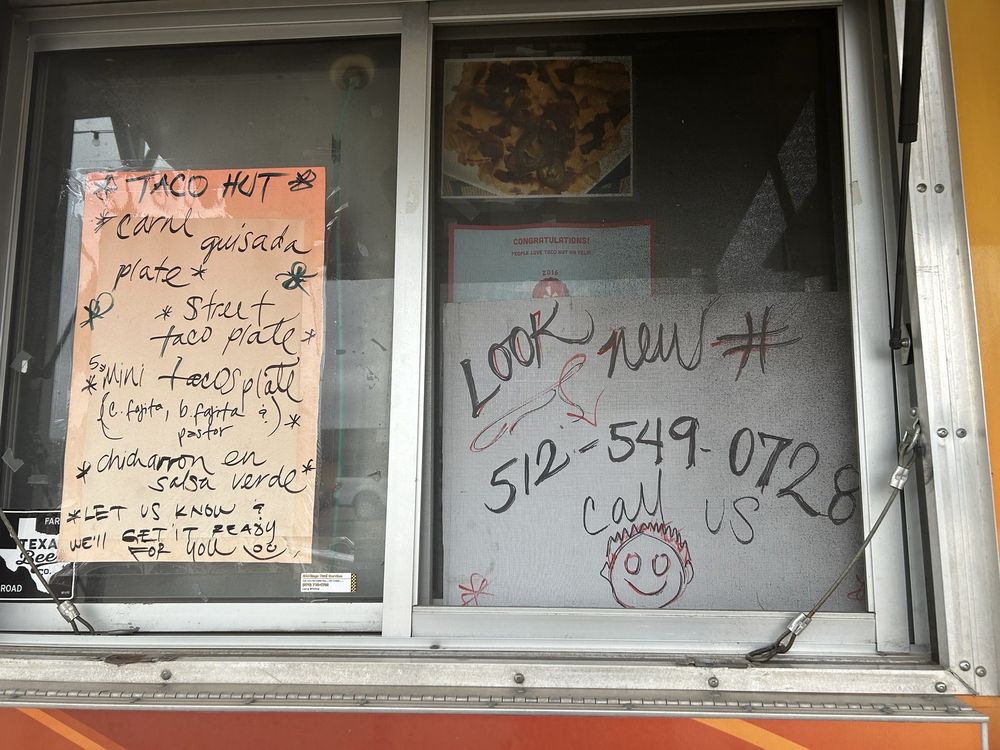 * TACO HUT *
* carne guisada
plate *
* Street
taco plate *
* 5 mini tacos plate
(c. fajita, b. fajita &
pastor) *
* chicharron en
salsa verde *
* LET US KNOW &
WE'LL GET IT READY
FOR YOU
FAR
TEXA
Beef
CO.
ROAD
CONGRATULATIONS!
PEOPLE LOVE TACO HUT ON YELP!
2016
LOOK new #
512-549-0728
call us